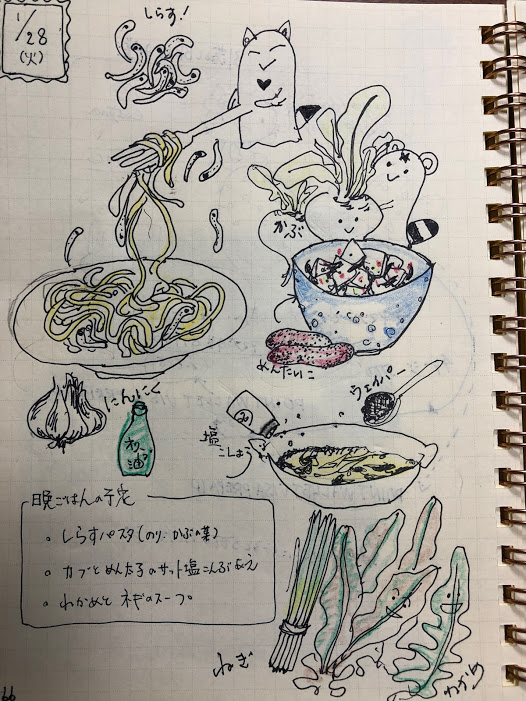 1/28
(火)
しらす!
かぶ
めんたいこ
にんにく
オリーブ油
ウェイパー
塩
こしょう
晩ごはんの予定
・しらすパスタ(のり、かぶの葉)
・カブとめん太子のサット塩こんぶあえ
・わかめとネギのスープ
ねぎ
わかめ
66